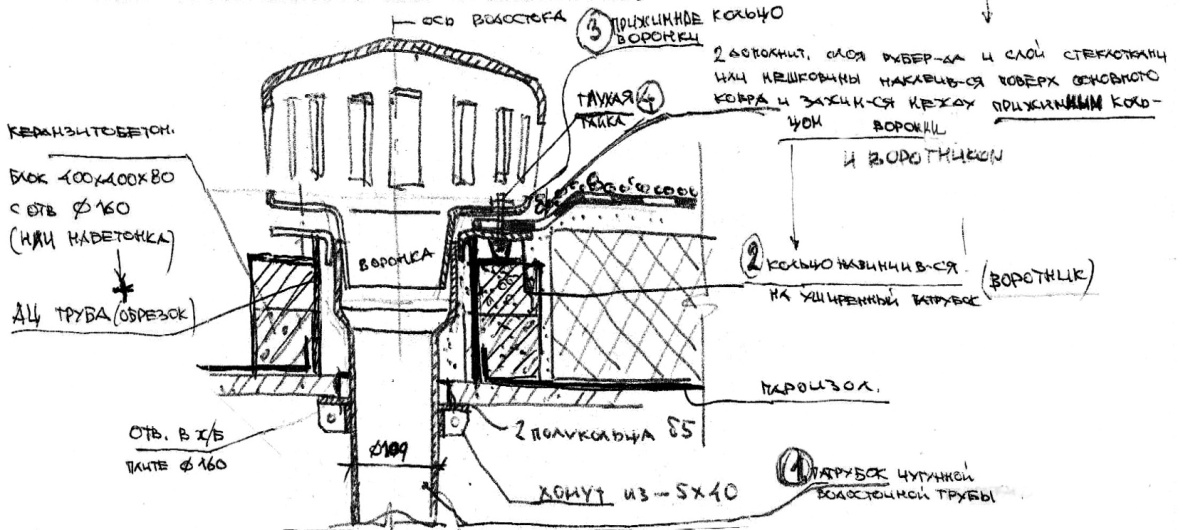 ОСЬ ВОДОСТОКА
③ ПРИЖИМНОЕ КОЛЬЦО
ВОРОНКИ
2 ДОПОЛНИТ. СЛОЯ РУБЕР-ДА И СЛОЙ СТЕКЛОТКАНИ
ИЛИ МЕШКОВИНЫ НАКЛЕИВ-СЯ ПОВЕРХ ОСНОВНОГО
КОВРА И ЗАЖИМ-СЯ МЕЖДУ ПРИЖИМНЫМ КОЛЬ-
ЦОМ ВОРОНКИ
И ВОРОТНИКОМ
ГЛУХАЯ ④
ГАЙКА
КЕРАМЗИТОБЕТОН.
БЛОК 400х400х80
С ОТВ Ø160
(ИЛИ НАБЕТОНКА)
АЦ ТРУБА (ОБРЕЗОК)
ВОРОНКА
② КОЛЬЦО НАВИНЧИВ-СЯ
НА УШИРЕННЫЙ ПАТРУБОК
(ВОРОТНИК)
ПАРОИЗОЛ.
ОТВ. В Ж/Б
ПЛИТЕ Ø160
2 ПОЛУКОЛЬЦА δ5
Ø109
ХОМУТ ИЗ – 5х40
① ПАТРУБОК ЧУГУННОЙ
ВОДОСТОЧНОЙ ТРУБЫ